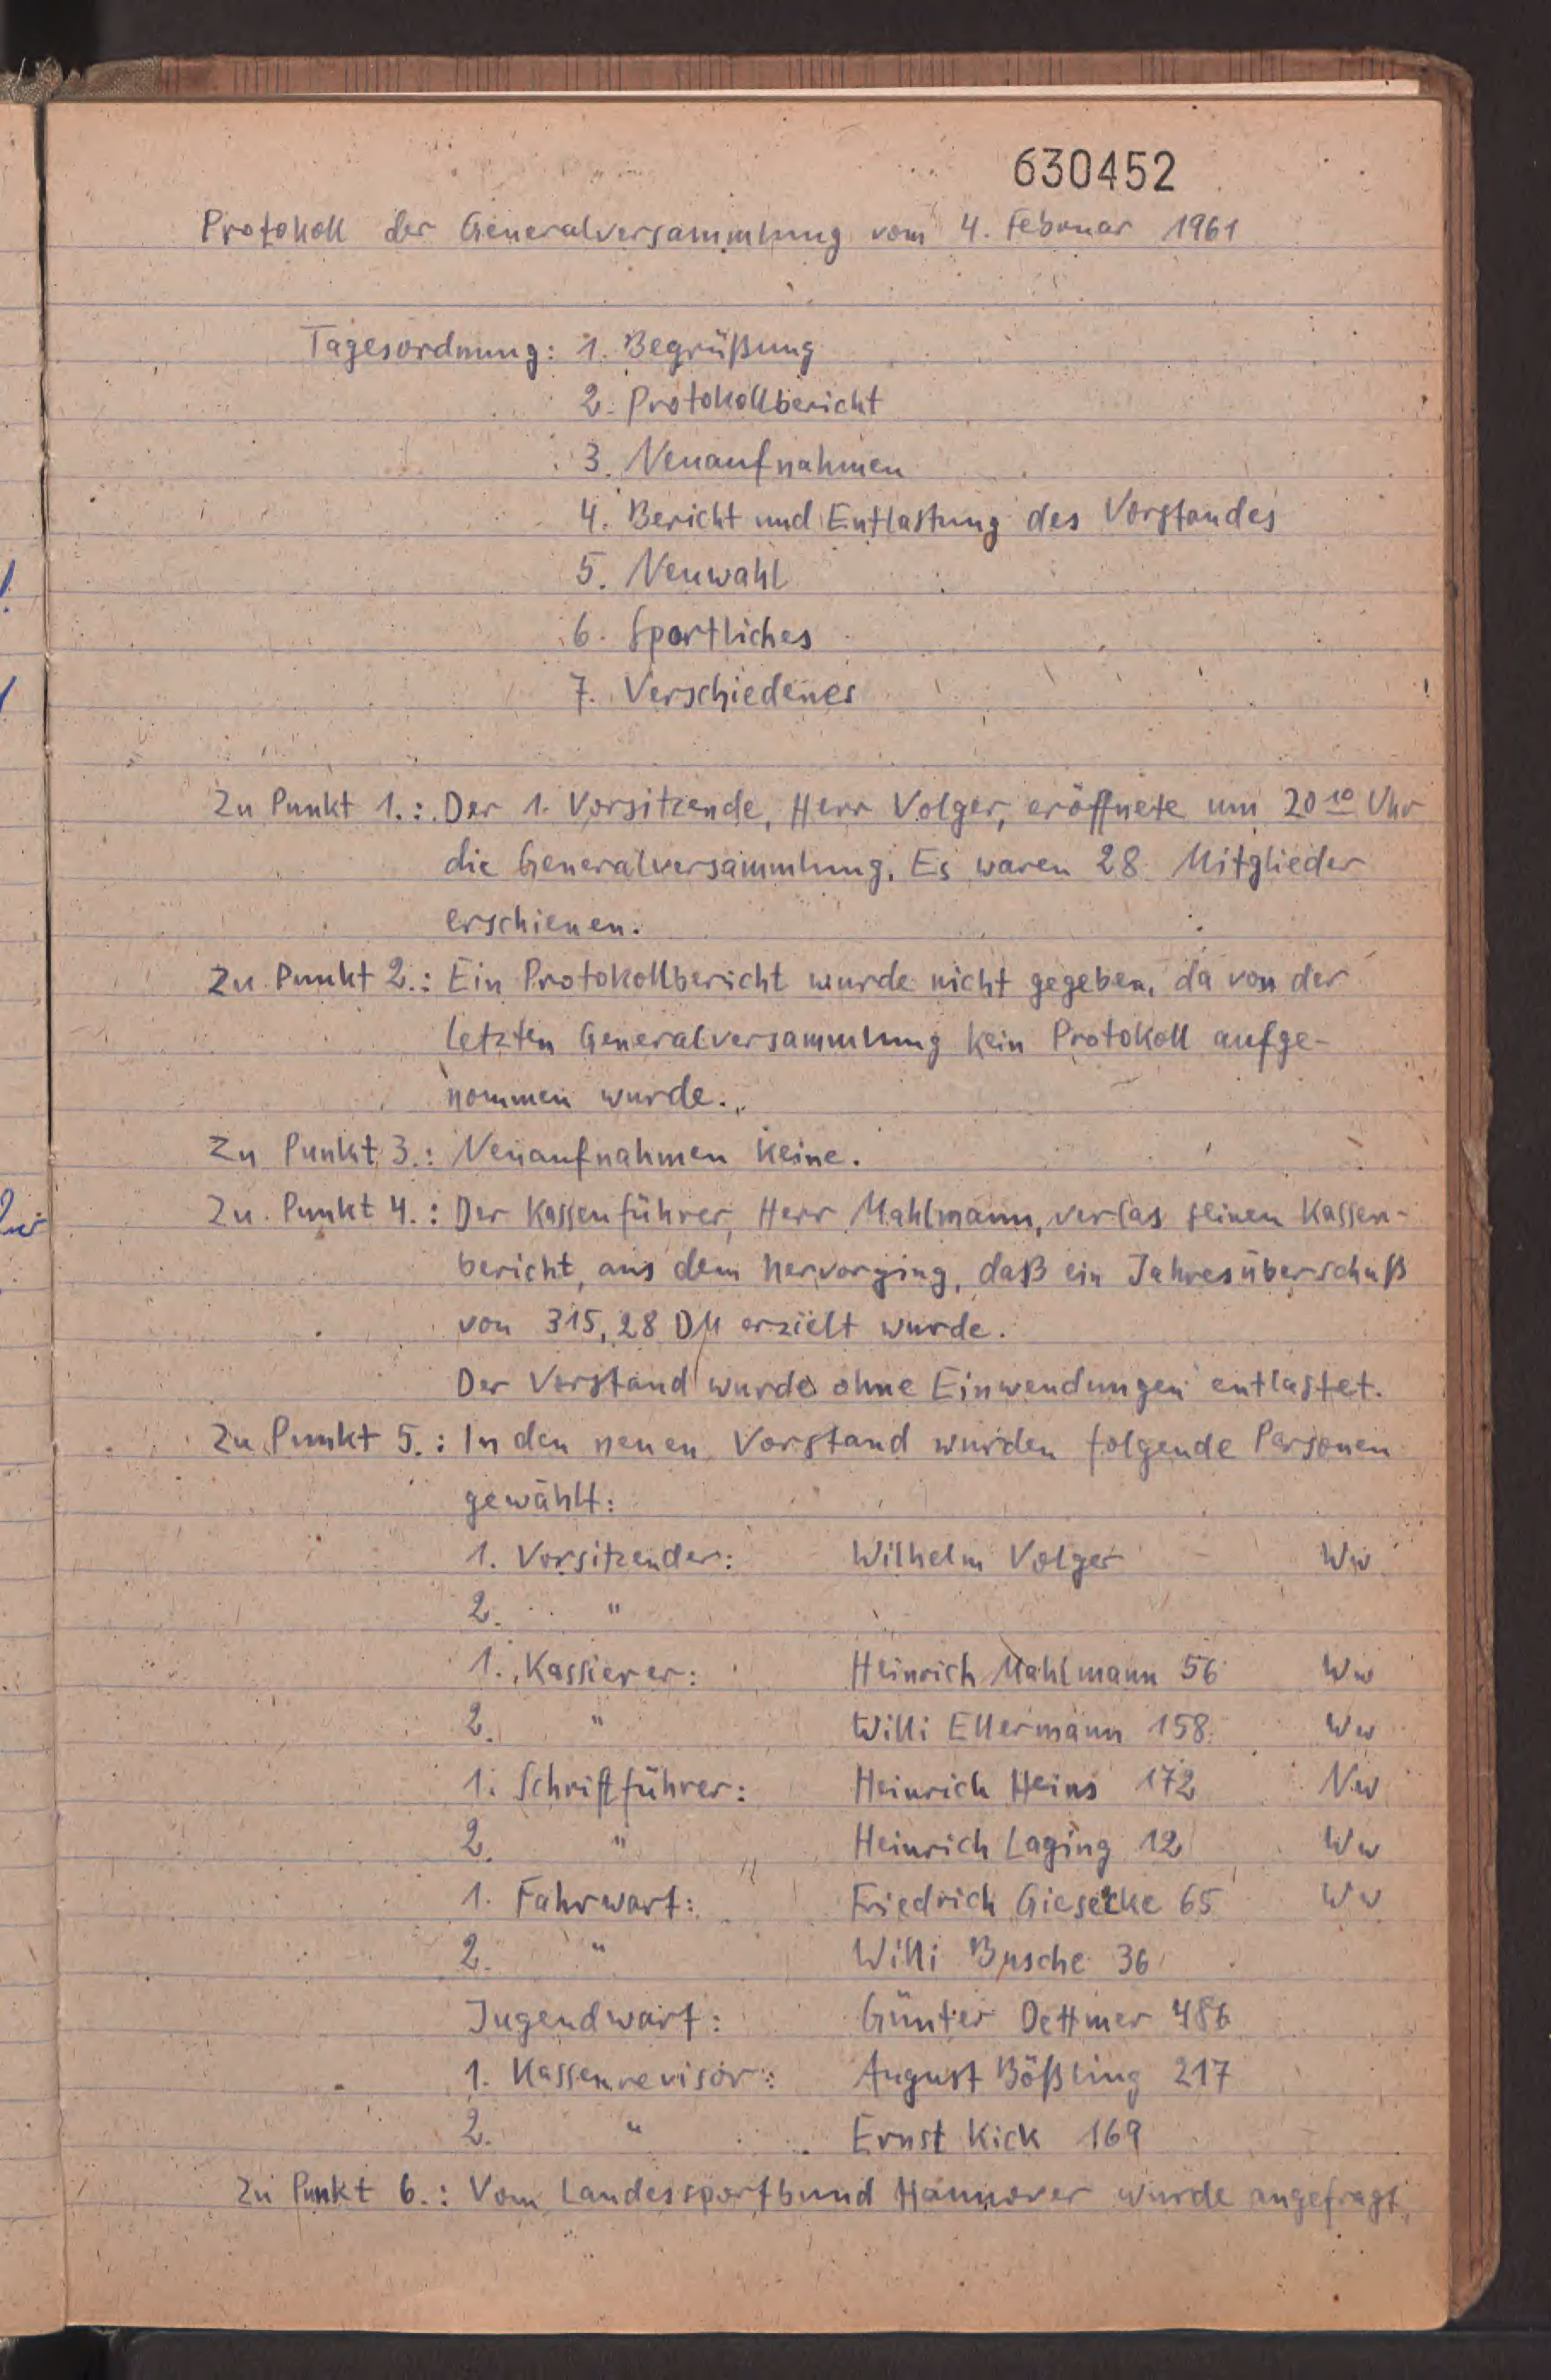 630452
Protokoll der Generalversammlung vom 4. Februar 1961
Tagesordnung: 1. Begrüßung
2. Protokollbericht
3. Neuaufnahmen
4. Bericht und Entlastung des Vorstandes
5. Neuwahl
6. Sportliches
7. Verschiedenes
Zu Punkt 1.: Der 1. Vorsitzende, Herr Volger, eröffnete um 20 10 Uhr
die Generalversammlung. Es waren 28 Mitglieder
erschienen.
Zu Punkt 2.: Ein Protokollbericht wurde nicht gegeben, da von der
letzten Generalversammlung kein Protokoll aufge-
nommen wurde.
Zu Punkt 3.: Neuaufnahmen keine.
Zu Punkt 4.: Der Kassenführer, Herr Mahlmann, verlas seinen Kassen-
bericht, aus dem hervorging, daß ein Jahresüberschuß
von 315,28 DM erzielt wurde.
Der Vorstand wurde ohne Einwendungen entlastet.
Zu Punkt 5.: In den neuen Vorstand wurden folgende Personen
gewählt:
1. Vorsitzender: Wilhelm Volger Ww
2. "
1. Kassierer: Heinrich Mahlmann 56 Ww
2. " Willi Ellermann 158 Ww
1. Schriftführer: Heinrich Heins 172 Nw
2. " Heinrich Laging 12 Ww
1. Fahrwart: Friedrich Giesecke 65 Ww
2. " Willi Busche 36
Jugendwart: Günter Dettmer 486
1. Kassenrevisor: August Bößling 217
2. " Ernst Kick 169
Zu Punkt 6.: Vom Landessportbund Hannover wurde angefragt,